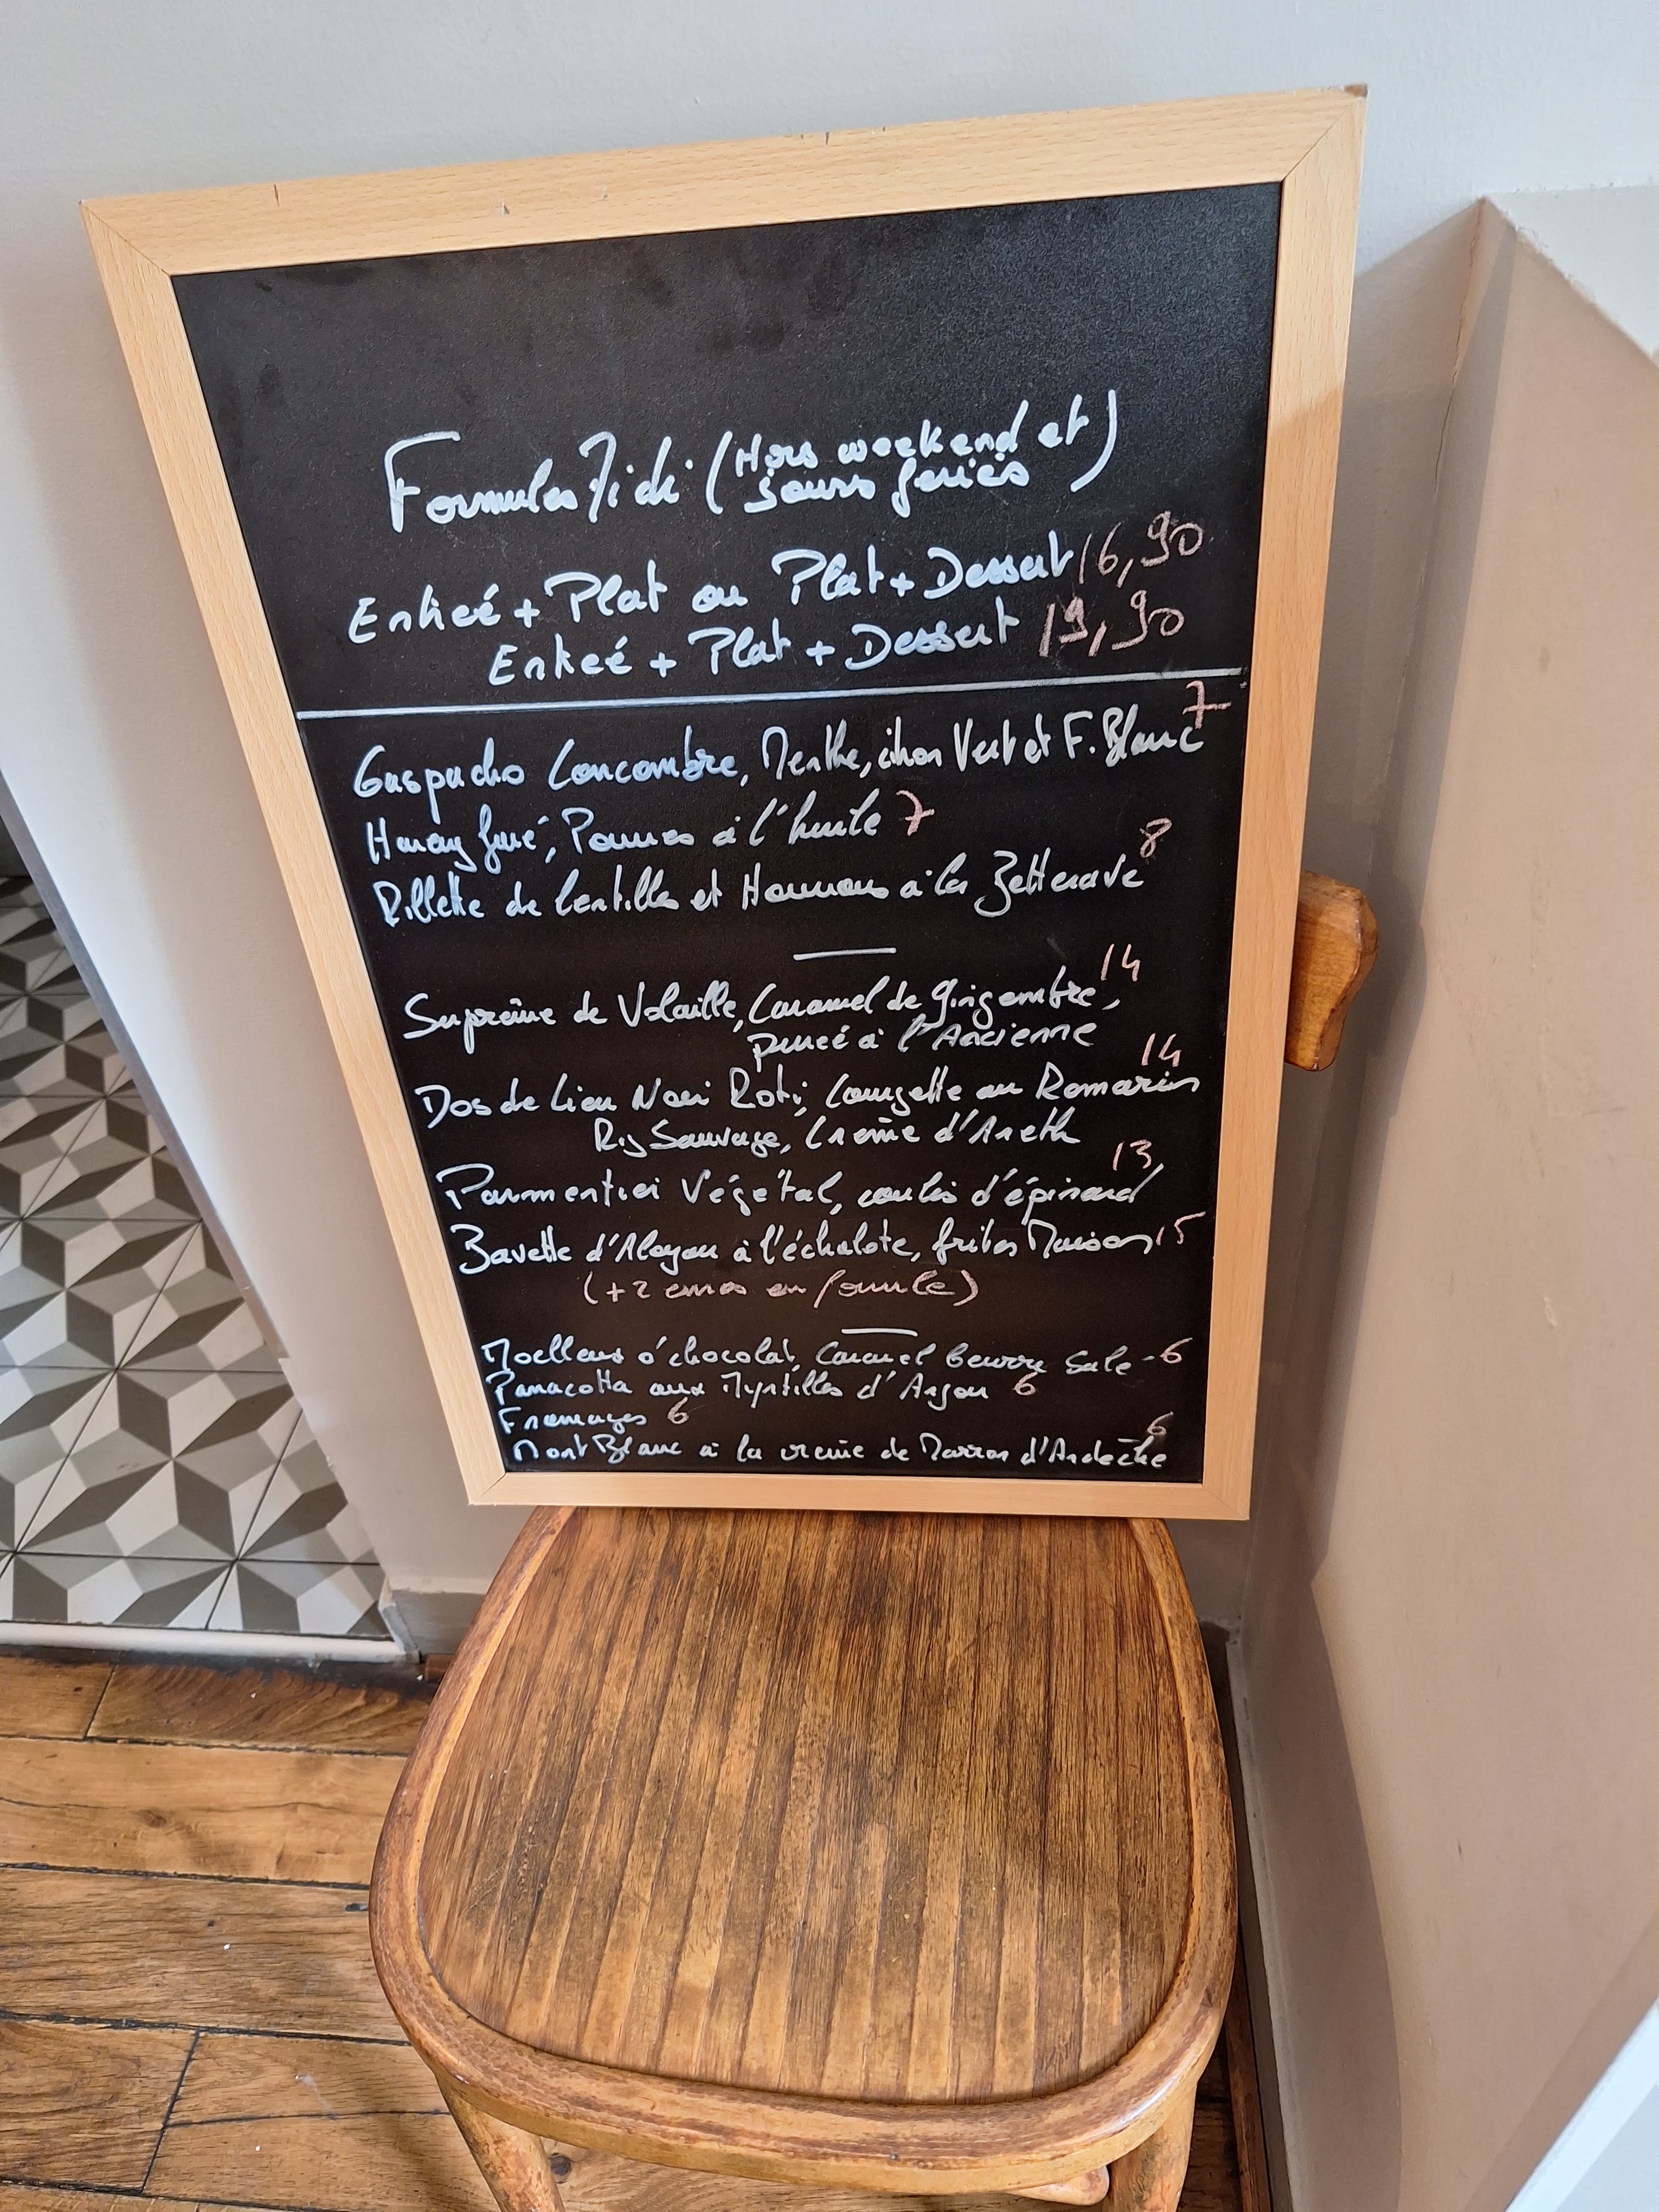 Formules Midi (Hors weekend et
jours feriés)
Entreé + Plat ou Plat + Dessert 16,90
Entreé + Plat + Dessert 19,90
Gaspacho Concombre, Menthe, citron Vert et F. Blanc 7
Hareng fumé, Pommes à l'huile 7
Rillette de lentilles et Houmous à la Betterave 8
Suprême de Volaille, Caramel de gingembre, 14
pureé à l'Ancienne
Dos de Lieu Noir Roti, Courgette au Romarin 14
Riz Sauvage, Crème d'Aneth
Parmentier Végétal, coulis d'épinard 13
Bavette d'Aloyau à l'échalote, frites Maison 15
(+2 euros en formule)
Moelleux ô chocolat, Caramel beurre Salé - 6
Panacotta aux Myrtilles d'Anjou 6
Fromages 6
Mont Blanc à la crème de Marron d'Ardèche 6